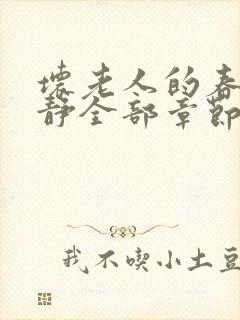 壞老人的春
靜全部章節
我不喫小土豆